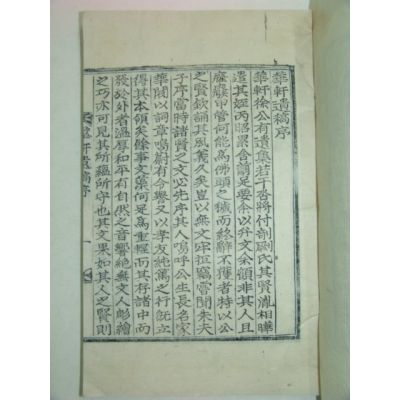 華軒遺稿序
華軒徐公有遺集若干將付剞劂氏其賢胤相曄
遣其姪丙照累舍前足要余以弁文余顧非其人且
何能爲佛頭之而終辭不獲者特以公
之賢欽誦其風義久矣豈以無文牢拒竊嘗聞朱夫
子序當時諸賢之文必先序其人嗚呼公生長名家
華閥以詞章鳴蔚有令譽又以孝友純篤之行旣立
得其本領矣餘事文藻何足爲重輕而其存諸中而
發於外者溫厚和平有自然之音響絕無文人彫繪
之巧亦可見其所蘊所守也其文果如其人之賢則
華軒遺稿序 一